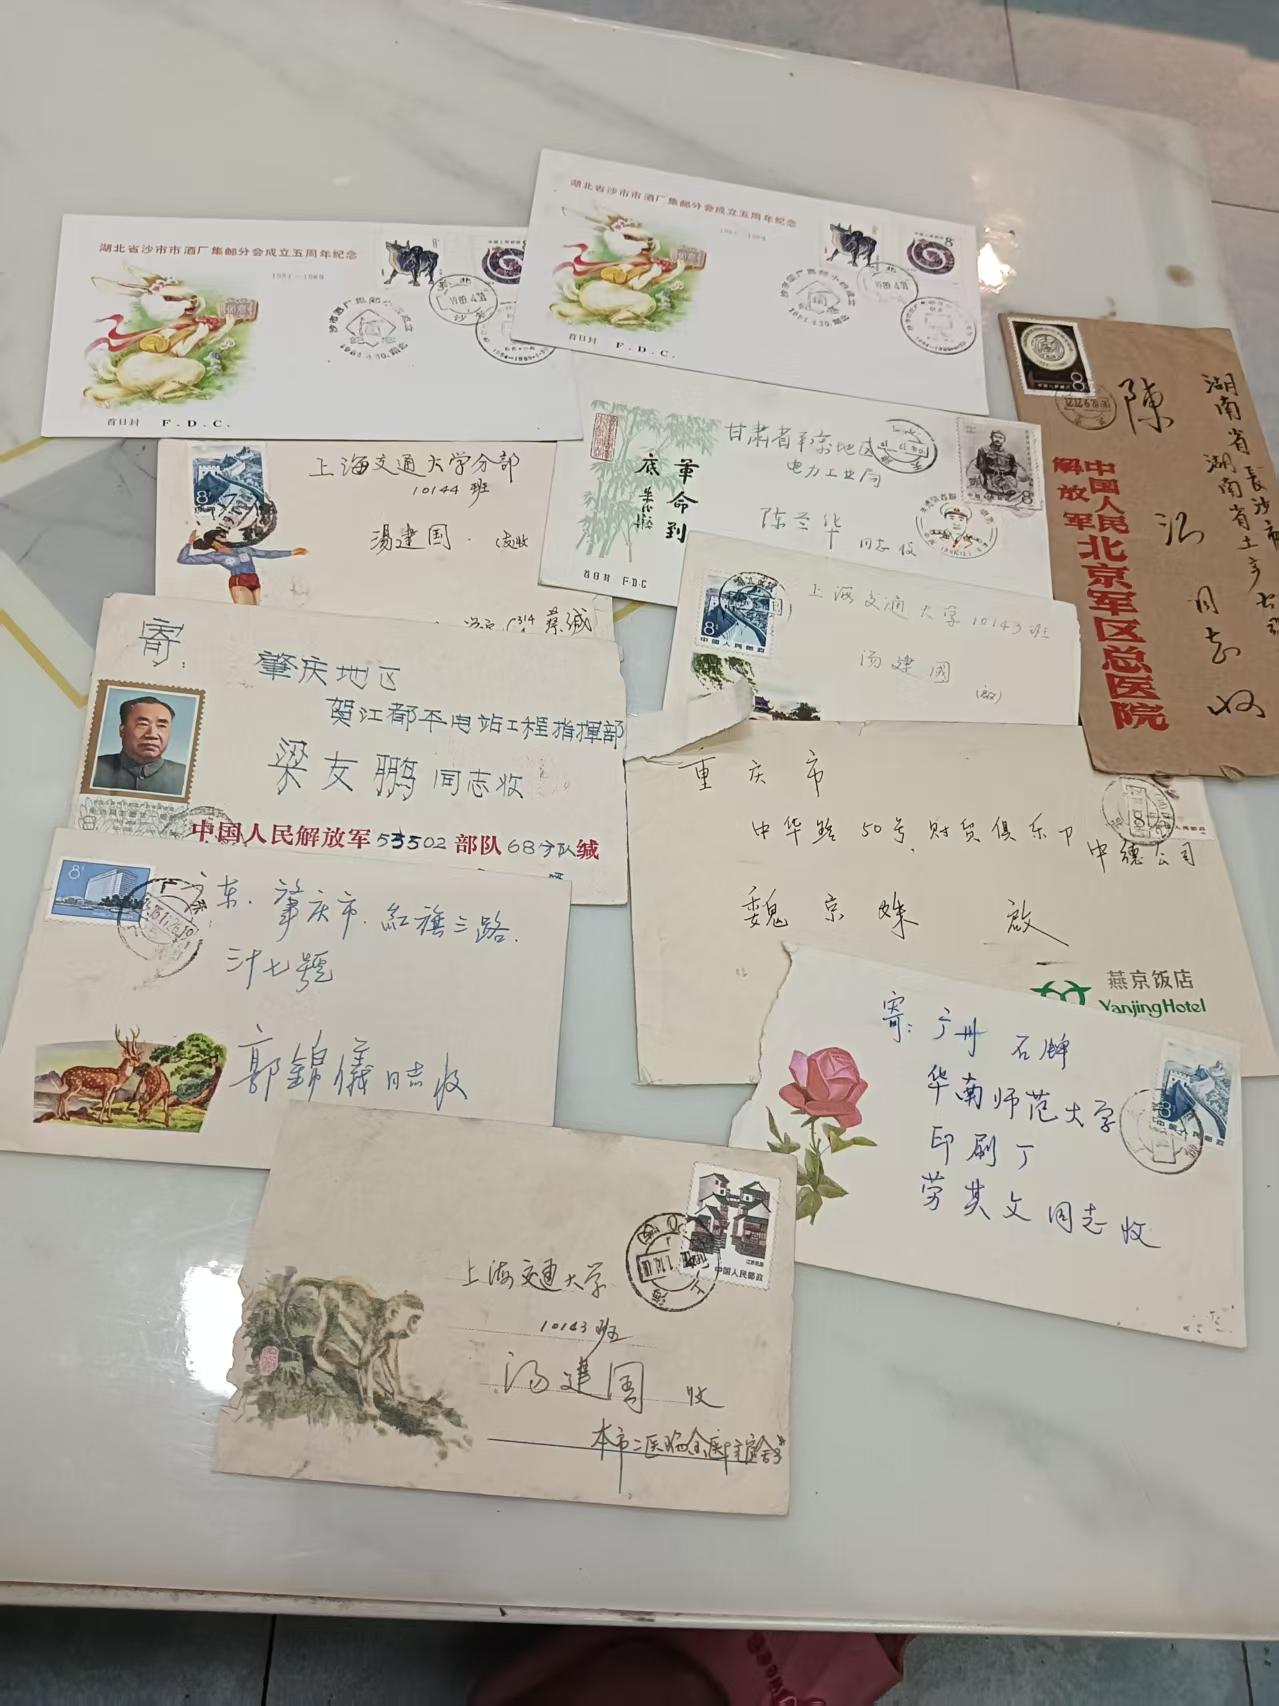 湖北省沙市市酒厂集邮分会成立五周年纪念
1984-1989
8
首日封 F.D.C.
湖北省沙市市酒厂集邮分会成立五周年纪念
1984-1989
8
首日封 F.D.C.
8
中国人民解放军北京军区总医院
湖南省长沙市
湖南省土产
陈
同志收
8
上海交通大学分部
10144班
汤建国
革命到底
首日封 FDC
甘肃省平凉地区
电力工业局
陈兰华 同志收
8
8
中国人民邮政
上海交通大学10143班
汤建国
(启)
寄:
肇庆地区
贺江都平电站工程指挥部
梁友鹏同志收
中国人民解放军53502部队68分队缄
重庆市
中华路50号,财贸俱乐部
中德公司
魏京姝 启
燕京饭店
YanjingHotel
8
广东.肇庆市.红旗三路.
三十七號
郭錦儀同志收
寄:广州 石牌
华南师范大学
印刷厂
劳其文同志收
8
中国人民邮政
上海交通大学
10143班
汤建国 收
中国人民邮政